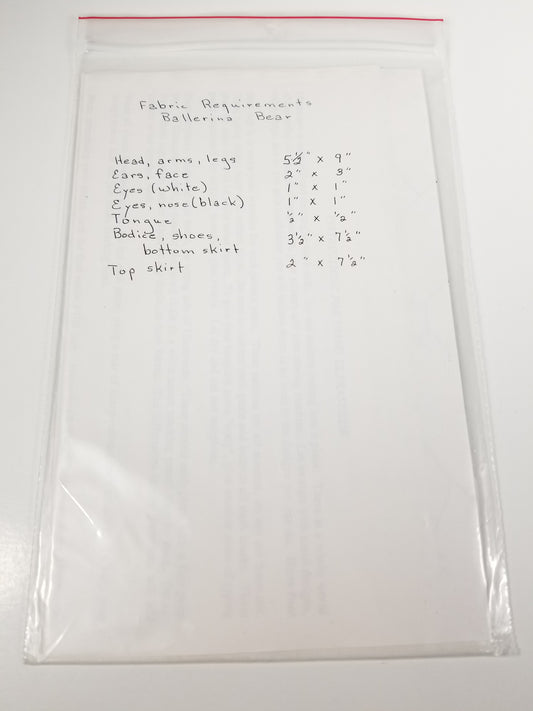 Fabric Requirements
Ballerina Bear
Head, arms, legs 5½" x 9"
Ears, face 2" x 3"
Eyes (white) 1" x 1"
Eyes, nose (black) 1" x 1"
Tongue ½" x ½"
Bodice, shoes, 3½" x 7½"
bottom skirt
Top skirt 2" x 7½"